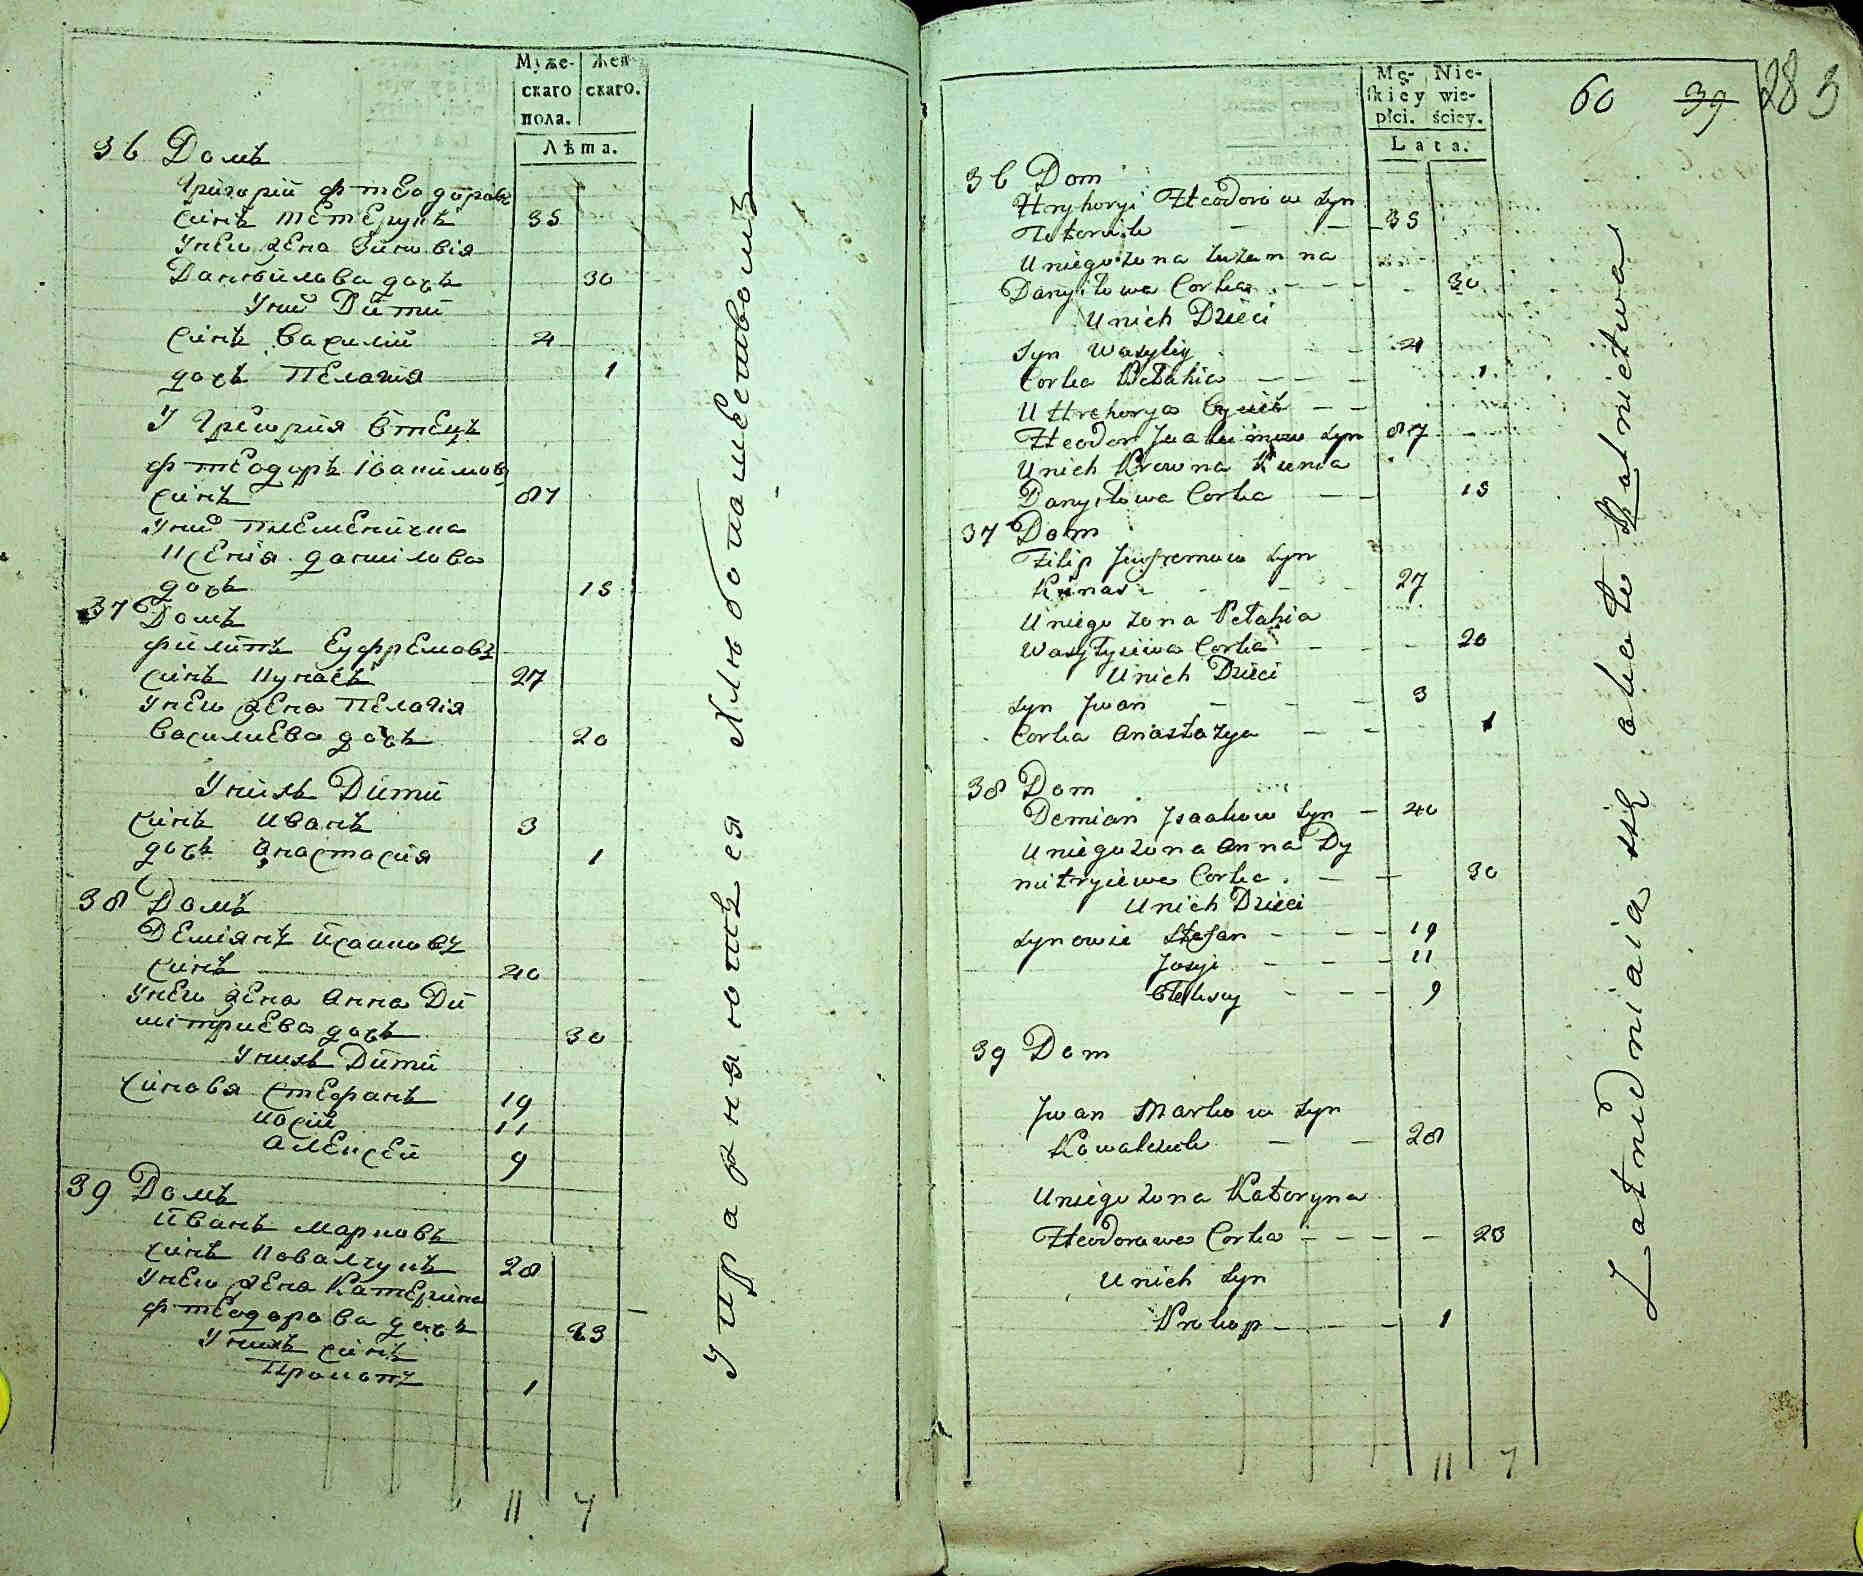 Муже-
скаго
пола.
Жен-
скаго.
Лѣта.
36 Домъ
Григорій Фтеодоровъ
синъ Тетерукъ 35
Унего жена Зиновія
Данѣилова дочъ 30
Униӯ Дити
синъ Василий 4
дочъ Пелагія 1
У Григория Отецъ
Фтеодоръ Іоакимовъ
синъ 87
Униӯ племеничка
Ксенія данилова
дочъ 15
37 Домъ
Филипъ Еуфремовъ
синъ Кунасъ 27
Унего жена Пелагія
Василиева дочъ 20
Унихъ Дити
синъ Иванъ 3
дочъ Анастасия 1
38 Домъ
Деміянъ Исааковъ
синъ 40
Унего жена Анна Ди
митриева дочъ 30
Унихъ Дити
Синовя Стефанъ 19
Иосій 11
Алексей 9
39 Домъ
Иванъ Марковъ
синъ Ковалчукъ 28
Унего жена Катерина
Фтеодорова дочъ 23
Унихъ синъ
Прокопъ 1
11 7
Упражняются Хлѣбопашествомъ
Mę-
skiey
płci.
Nie-
wie-
ściey.
Lata.
60 39 28 3
36 Dom
Hryhoryi Fteodorow Syn
Teteruk 35
Uniego żona
Danyłowa Corka 30
Unich Dzieci
Syn Wasyliy 4
Corka Pelahia 1
U Hrehorya Oyciec
Fteodor Joakimow Syn 87
Unich Krewna Xenia
Danyłowa Corka 15
37 Dom
Filip Jeufremow Syn
Kunas 27
Uniego żona Pelahia
Wasylyiewa Corka 20
Unich Dzieci
Syn Jwan 3
Corka Anastazya 1
38 Dom
Demian Jsaakow Syn 40
Uniego żona Anna Dy
mitryiewa Corka 30
Unich Dzieci
Synowie Stefan 19
Josyi 11
Olexiy 9
39 Dom
Jwan Markow Syn
Kowalczuk 28
Uniego żona Kateryna
Fteodorowa Corka 23
Unich Syn
Prokop 1
11 7
Zatrudniaią się około Rolnictwa